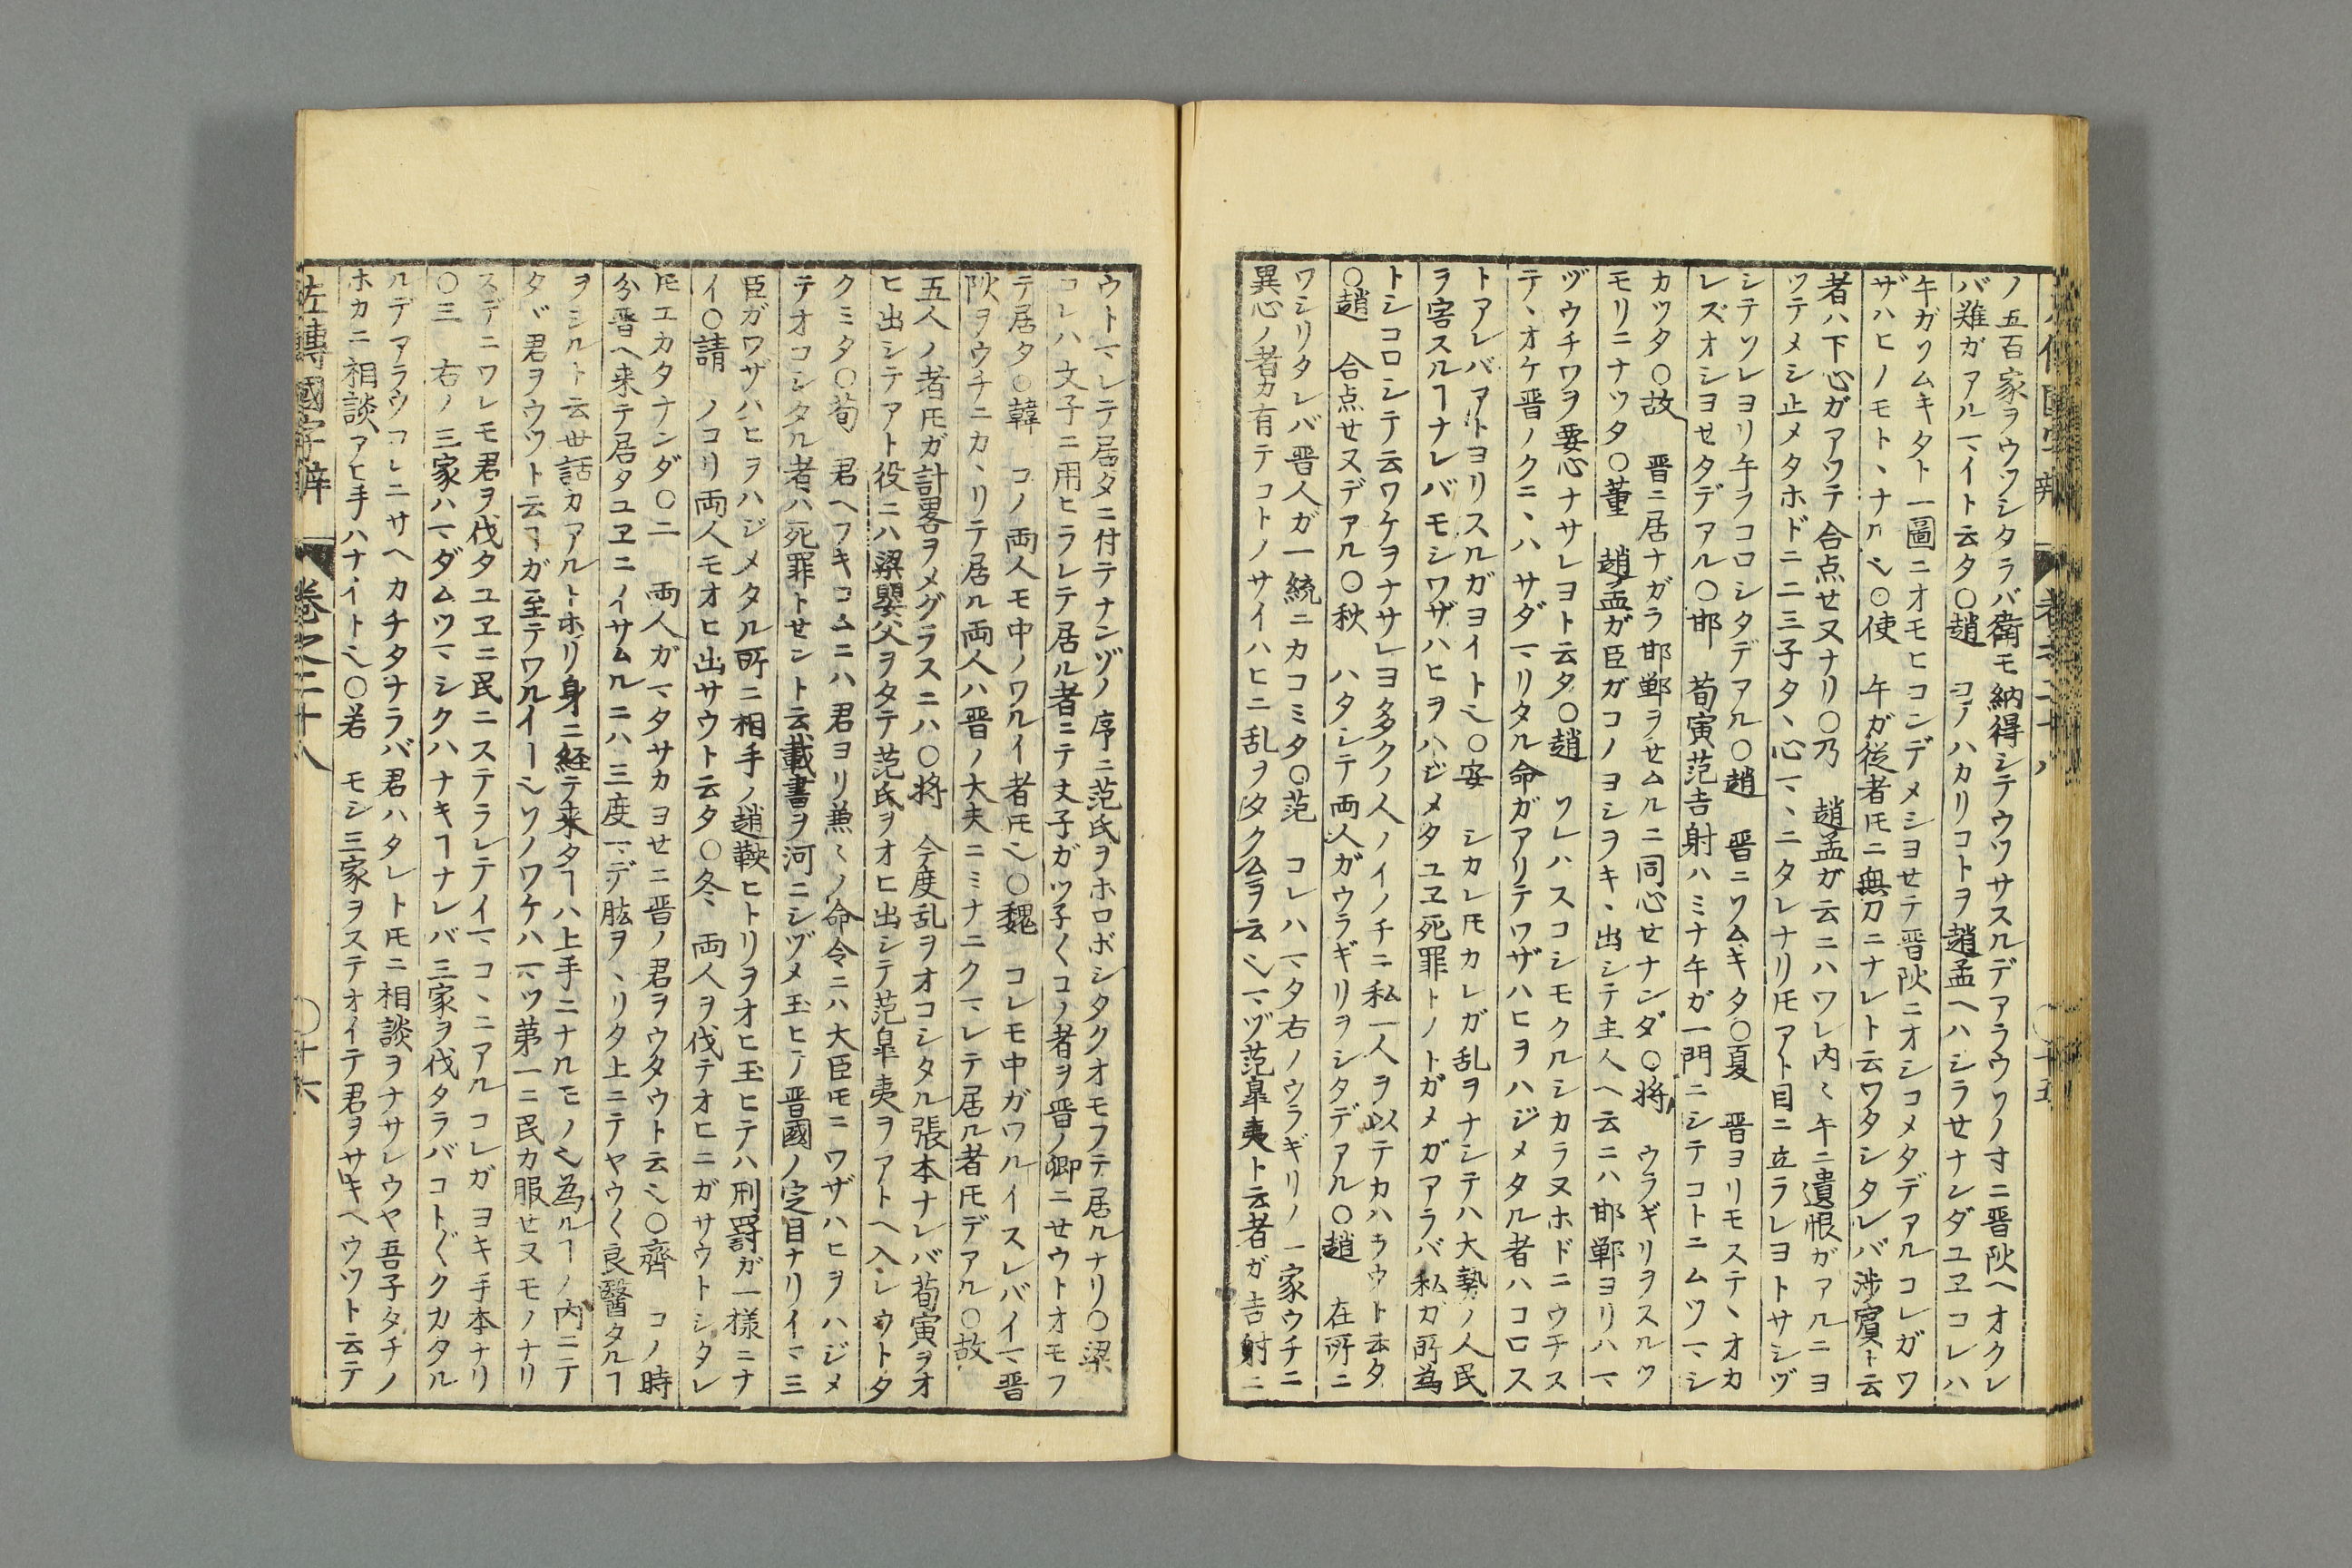 ノ五百家ヲウツシタラバ衛モ納得シテウツサスルデアラウソノ寸ニ晋陜ヘオクレ
バ難ガアルマイト云タ〇趙 コノハカリコトヲ趙孟ヘハシラセナンダユヱコレハ
午ガソムキタト一圖ニオモヒコンデメシヨセテ晋陜ニオシコメタデアルコレガワ
ザハヒノモトヽナル也〇使 午ガ從者𪜈ニ無刀ニナレト云ワタシタレバ渉賓ト云
者ハ下心ガアツテ合点せヌナリ〇乃 趙孟ガ云ニハワレ内〻午ニ遺恨ガアルニヨ
ツテメシ止メタホドニ二三子タヽ心マヽニタレナリ𪜈アト目ニ立ラレヨトサシヅ
シテソレヨリ午ヲコロシタデアル〇趙 晋ニソムキタ〇夏 晋ヨリモステヽオカ
レズオシヨせタデアル〇邯 荀寅范吉射ハミナ午ガ一門ニシテコトニムツマシ
カツタ〇故 晋ニ居ナガラ邯鄲ヲせムルニ同心せナンダ〇将 ウラギリヲスルツ
モリニナツタ〇董 趙孟ガ臣ガコノヨシヲキヽ出シテ主人ヘ云ニハ邯鄲ヨリハマ
ヅウチワヲ要心ナサレヨト云タ〇趙 ソレハスコシモクルシカラヌホドニウチス
テヽオケ晋ノクニヽハサダマリタル命ガアリテワザハヒヲハジメタル者ハコロス
トアレバアトヨリスルガヨイト也〇安 シカレ𪜈カレガ乱ヲナシテハ大勢ノ人民
ヲ害スルヿナレバモシワザハヒヲハジメタユヱ死罪トノトガメガアラバ私ガ所為
トシコロシテ云ワケヲナサレヨ多クノ人ノイノチニ私一人ヲ以テカハラウト云タ
〇趙 合点せヌデアル〇秋 ハタシテ両人ガウラギリヲシタデアル〇趙 在所ニ
ワシリタレバ晋人ガ一統ニカコミタ〇范 コレハマタ右ノウラギリノ一家ウチニ
異心ノ者カ有テコトノサイハヒニ乱ヲタクムヲ云也マヅ范皐夷ト云者ガ吉射ニ
ウトマレテ居タニ付テナンゾノ序ニ范氏ヲホロボシタクオモフテ居ルナリ〇梁
コレハ文子ニ用ヒラレテ居ル者ニテ文子ガツ子〱コノ者ヲ晋ノ卿ニせウトオモフ
テ居タ〇韓 コノ両人モ中ノワルイ者𪜈也〇魏 コレモ中ガワルイスレバイマ晋
陜ヲウチニカヽリテ居ル両人ハ晋ノ大夫ニミナニクマレテ居ル者𪜈デアル〇故
五人ノ者𪜈ガ計畧ヲメグラスニハ〇将 今度乱ヲオコシタル張本ナレバ荀寅ヲオ
ヒ出シテアト役ニハ梁嬰父ヲタテ范氏ヲオヒ出シテ范皐夷ヲアトヘ入レウトタ
クミタ〇荀 君ヘフキコムニハ君ヨリ兼〻ノ命令ニハ大臣𪜈ニワザハヒヲハジメ
テオコシタル者ハ死罪トせント云載書ヲ河ニシヅメ玉ヒテノ晋國ノ定目ナリイマ三
臣ガワザハヒヲハジメタル所ニ相手ノ趙鞅ヒトリヲオヒ玉ヒテハ刑罰ガ一様ニナ
イ〇請 ノコリ両人モオヒ出サウト云タ〇冬 両人ヲ伐テオヒニガサウトシタレ
𪜈エカタナンダ〇二 両人ガマタサカヨせニ晋ノ君ヲウタウト云也〇齊 コノ時
分晋ヘ来テ居タユヱニイサムルニハ三度マデ肱ヲヽリタ上ニテヤウ〱良醫タルヿ
ヲシルト云世話カアルトホリ身ニ経テ来タヿハ上手ニナルモノ也為ルヿノ内ニテ
タヾ君ヲウツト云ヿガ至テワルイヿ也ソノワケハマヅ第一ニ民カ服せヌモノナリ
スデニワレモ君ヲ伐タユヱニ民ニステラレテイマコヽニアルコレガヨキ手本ナリ
〇三 右ノ三家ハマダムツマシクハナキヿナレバ三家ヲ伐タラバコト〲クカタル
ルデアラウコレニサヘカチタナラバ君ハタレト𪜈ニ相談ヲナサレウヤ吾子タチノ
ホカニ相談アヒ手ハナイト也〇若 モシ三家ヲステオイテ君ヲサキヘウツト云テ
左傳國字辨 卷之二十八 〇十六